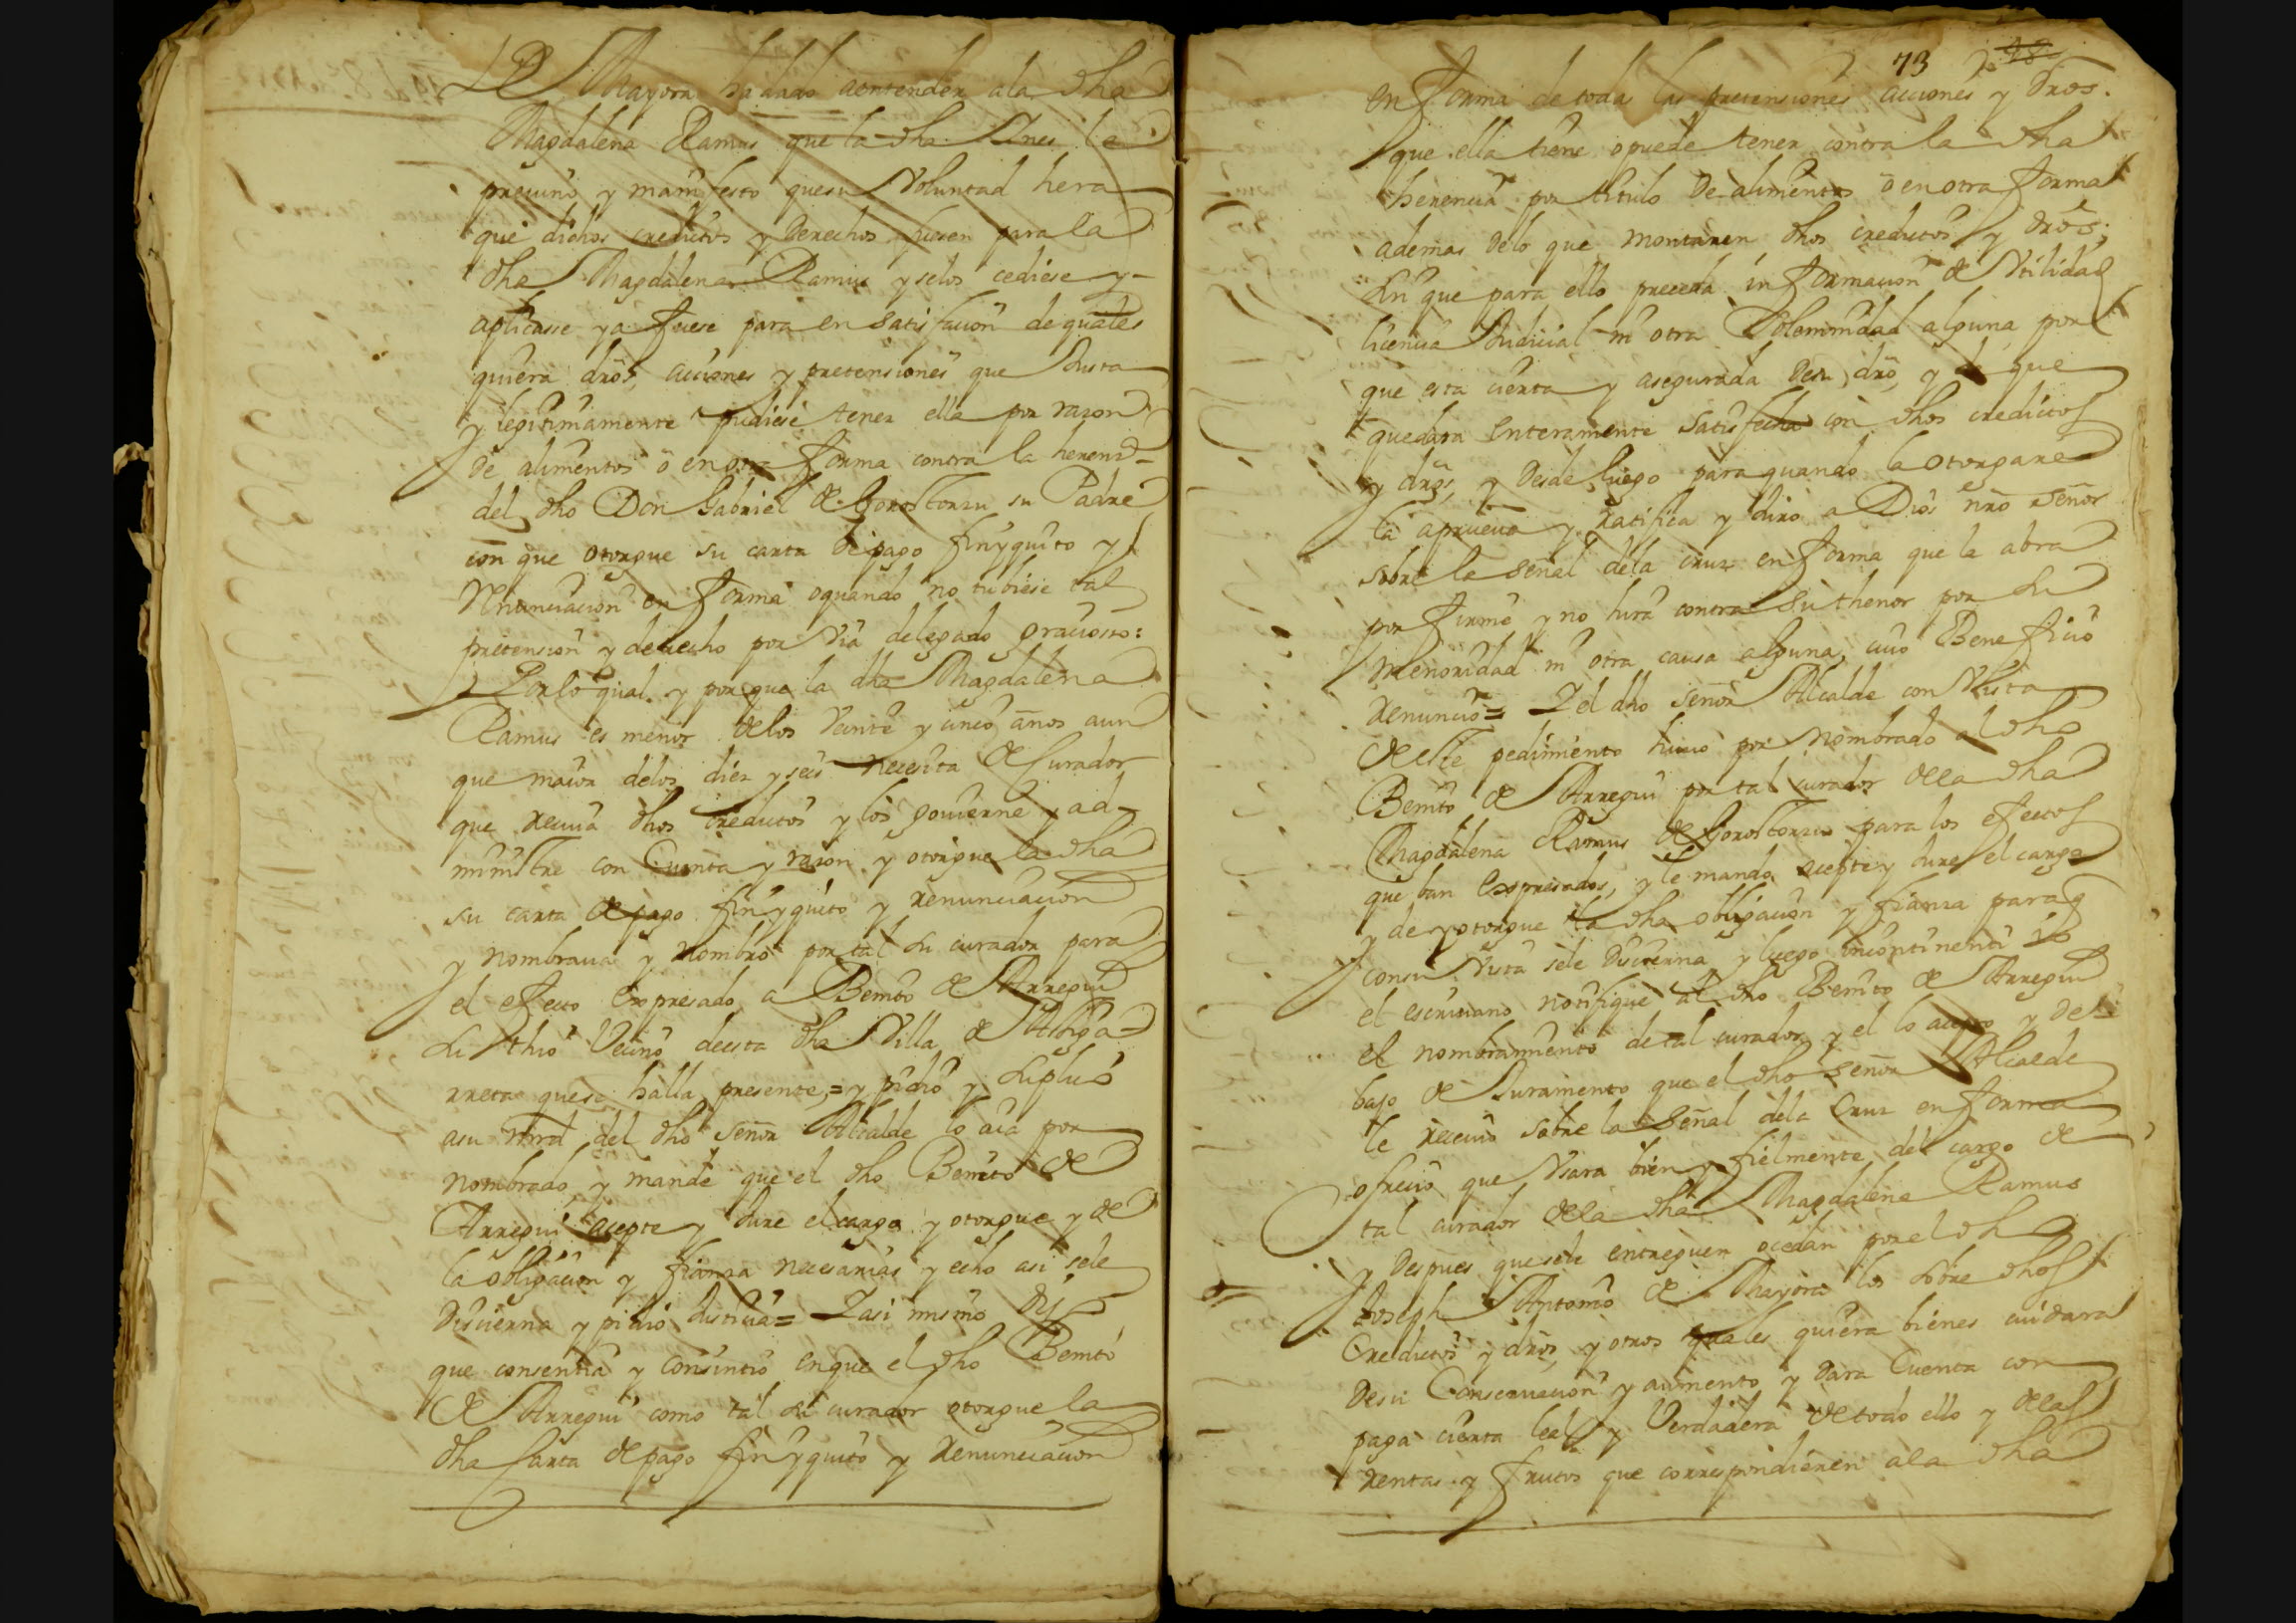 Mayora ha dado aentender ala dha
Magdalena Ramus que la dha Ines le
preuino y manifesto quesu Voluntad hera
que dichos creditos y Derechos fuesen para la
dha Magdalena Ramus y selos cediese y
aplicasse ya fuese para en satisfaçion de quales
quiera dros, acciones y pretensiones que Justa
y legitimamente pudiese tener ella por razon
de alimentos o en otra forma contra la herenᵃ
del dho Don Gabriel de Gorostorzu su Padre
con que otorgue su carta de pago finyquito y
Renunciacion en forma oquando no tubiese tal
pretension y derecho por Via delegado graçioso:
Porlo qual y porque la dha Magdalena
Ramus es menor delos Veinte y cinco años aun
que maior delos diez y seis necesita de Curador
que reciua dhos creditos y los gouierne y ad
ministre con Cuenta y razon y otorgue la dha
su carta de pago finyquito y renunciacion
y nombraua y nombro por tal su curador para
el efecto Expresado a Benito de Arregui
su thio Vecino deesta dha Villa de Alega
rreta quese halla presente,= y pidio y suplico
asu mrd del dho señor Alcalde lo aia por
nombrado y mande que el dho Benito de
Arregui acepte y Jure el cargo y otorgue y de
la obligacion y fianza necesarias y echo asi sele
Discierna y pidio Justicia= Y asi mismo Dijo
que consentia y consintio enque el dho Benito
de Arregui como tal su curador otorgue la
dha Carta de pago finyquito y Renunciacion
73
en forma de todas las pretensiones acciones y Dros.
que ella tiene opuede tener contra la dha
herencia por titulo De alimentos o en otra forma
ademas delo que montaren dhos creditos y dros;
sin que para ello preceda informacion de Utilidad
licencia Judicial ni otra Solemnidad alguna por
que esta cierta y asegurada desu dro, y que
quedara Enteramente satisfecha con dhos creditos
y dros, y Desde luego para quando la otorgare
la aprueua y ratifica y Juro a Dios nro señor
sobre la señal dela cruz en forma que la abra
por firme y no hira contra su thenor por su
menoridad ni otra causa alguna, cuio Beneficio
renuncio= Y el dho señor Alcalde con Vista
de este pedimiento huuo por nombrado al dho
Benito de Arregui por tal curador dela dha
Magdalena Ramus de Gorostorzu para los efectos
que ban Expresados, y le mando acepte y Jure el cargo
y de y otorgue la dha obligacion y fianza para q
consu Vista sele Discierna y luego incontinenti yo
el escriuano notifique al dho Benito de Arregui
el nombramiento de tal curador y el lo acepto y de
bajo de Juramento que el dho señor Alcalde
le reciuio sobre la señal dela Cruz en forma
ofrecio que Usara bien y fielmente del cargo de
tal curador dela dha Magdalena Ramus
y Despues quesele entreguen ocedan por el dho
Joseph Antonio de Mayora los sobre dhos
Creditos y dros, y otros quales quiera bienes cuidara
desu Conseruacion y aumento y Dara Cuenta con
paga cierta leal y Verdadera de todo ello y delas
rentas y frutos que correspondieren ala dha